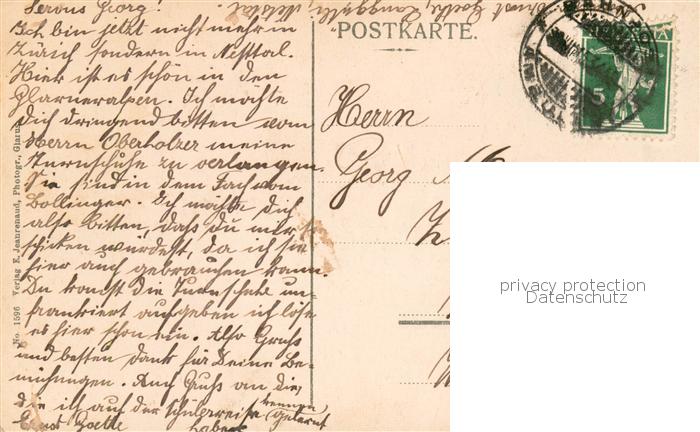 Servus Georg!
Ich bin jetzt nicht mehr in
Zürich sondern in
Hier ist es schön in den
Glarneralpen. Ich möchte
Dich dringend bitten vom
Herrn Oberholzer meine
Turnschuhe zu verlangen.
Sie sind in dem Fach vom
Bollinger. Ich möchte Dich
also bitten, dass du mir sie
schicken würdest, da ich sie
hier auch gebrauchen kann.
Du kannst die Turnschuhe un-
frankiert aufgeben ich löse
es hier schon ein. Also Gruss
und besten Dank für Deine Be-
mühungen. Auch Gruss an die,
die ich auf der Schülerreise kennen
Ernst Goette gelernt
habe
Ernst Goette
No. 1596 Verlag E. Jeanrenaud, Photogr., Glarus
POSTKARTE.
5
Herrn
Georg
privacy protection
Datenschutz